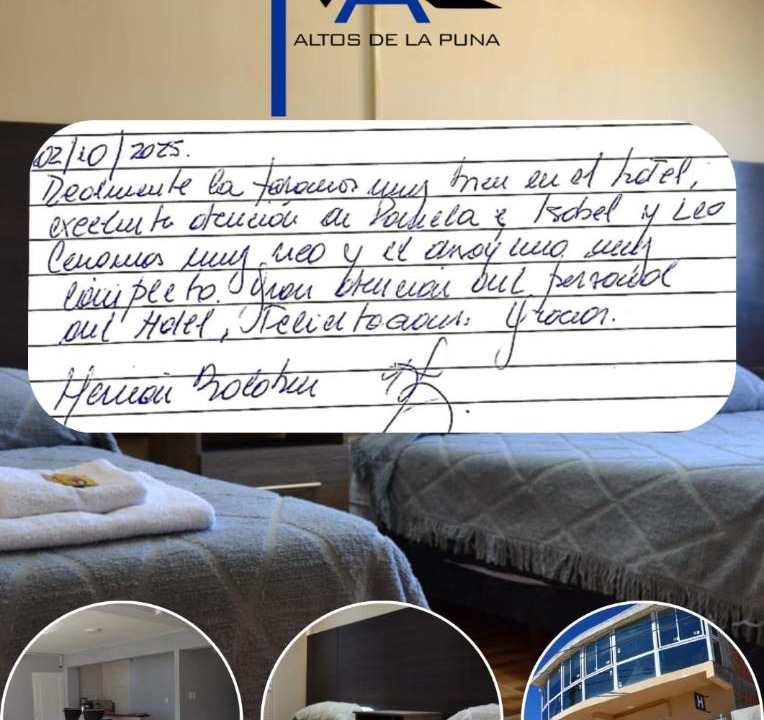 ALTOS DE LA PUNA
02/10/2025.
Realmente la pasamos muy bien en el hotel,
excelente atención de Pamela e Isabel y Leo
Cenamos muy rico y el desayuno muy
completo. Gran atención del personal
del Hotel, Felicitaciones. Gracias.
Hernán
H